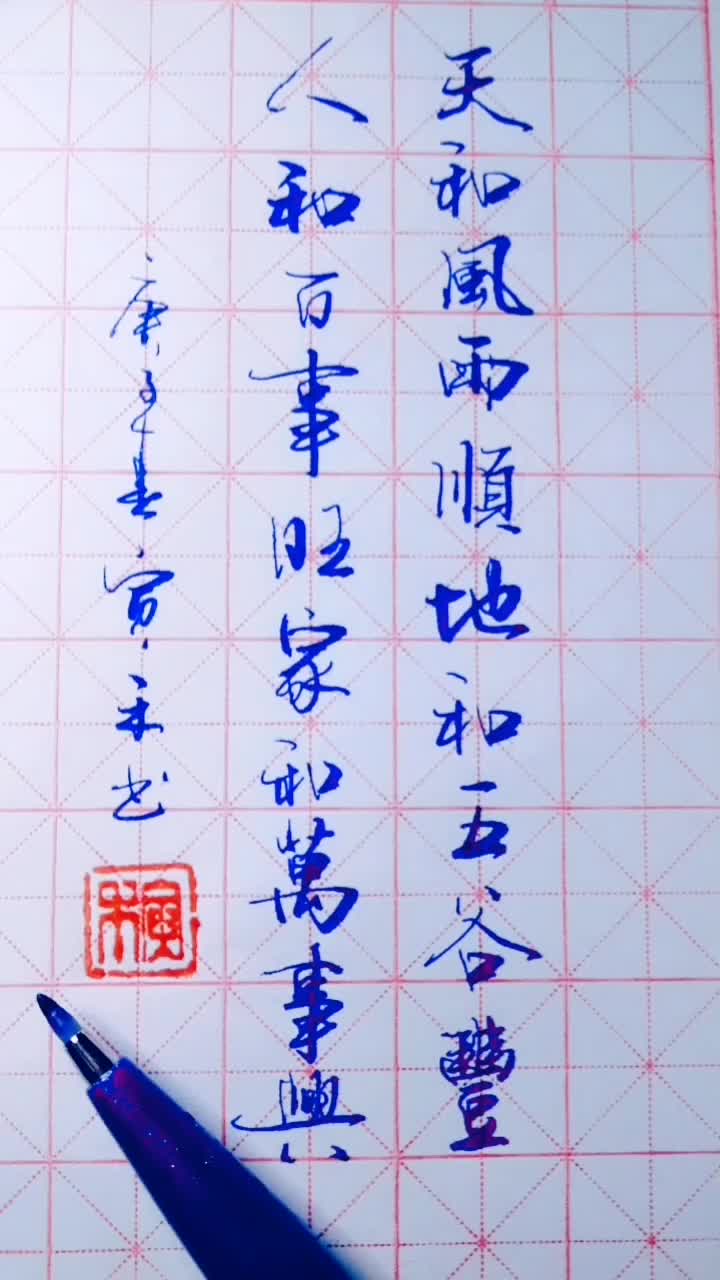 天和風雨順地和五谷豐
人和百事旺家和萬事興
庚子春寅禾书
寅禾